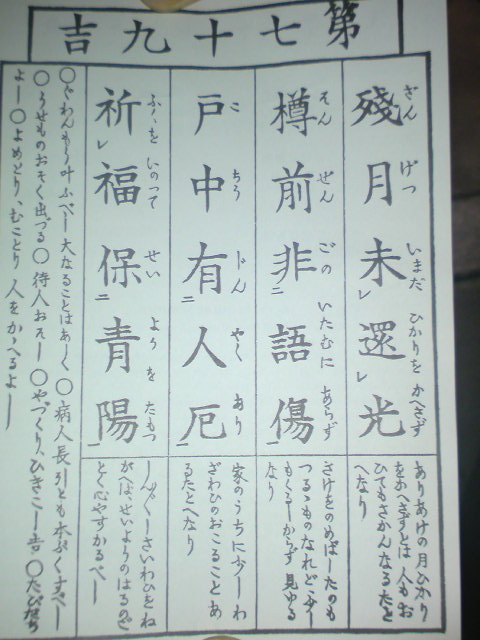 第七十九吉
ざん げつ いまだ ひかりを かへさず
殘月未レ還レ光
ありあけの月ひかり
をかへさずとは人もお
ひてもさかんなるたと
へなり
そん ぜん ごの いたむに あらず
樽前非二語傷一
さけをのめばしたのも
つるゝものなれど少し
もくるしからず見ゆる
なり
こ ちう じん やく あり
戸中有二人厄一
家のうちに少しわ
ざわひのおこることあ
るたとへなり
ふくを いのって せい ようを たもつ
祈レ福保二青陽一
さいわひをね
がへばせいようのはるのご
とく心やすかるべし
○ぐわんもう叶ふべし大なることはあしく○病人長引とも本ぷくすべし
○うせものおそく出づる○待人おそし○やづくり、ひきこし吉○たびだち
よし○よめとり、むことり人をかゝへるよし